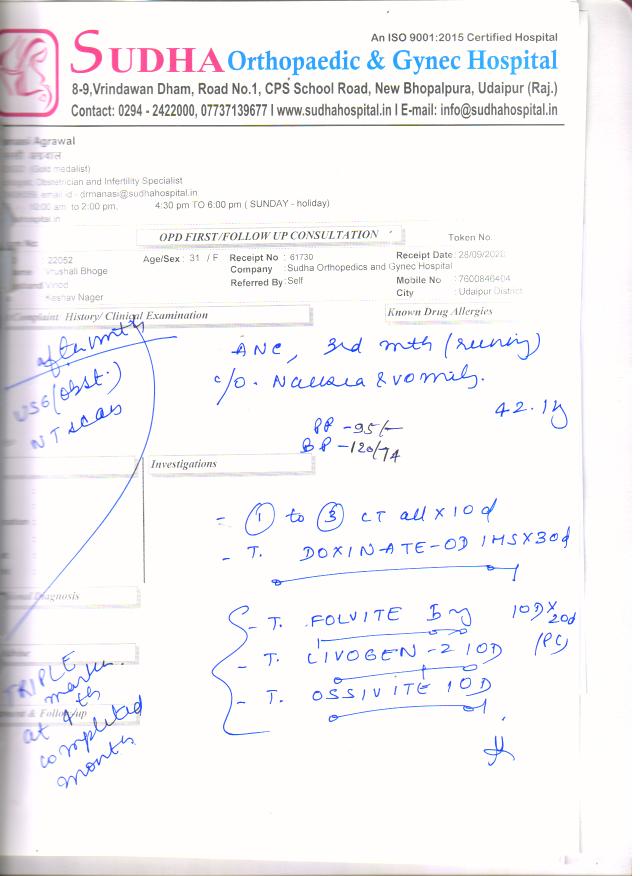 An ISO 9001:2015 Certified Hospital
SUDHA Orthopaedic & Gynec Hospital
8-9,Vrindawan Dham, Road No.1, CPS School Road, New Bhopalpura, Udaipur (Raj.)
Contact: 0294 - 2422000, 07737139677 I www.sudhahospital.in I E-mail: info@sudhahospital.in
Agrawal
(Gold medalist)
Obstetrician and Infertility Specialist
email id - drmanasi@sudhahospital.in
to 2:00 pm. 4:30 pm TO 6:00 pm ( SUNDAY - holiday)
OPD FIRST/FOLLOW UP CONSULTATION Token No.
22052 Age/Sex : 31 / F Receipt No : 61730 Receipt Date: 28/09/202
Vrushali Bhoge Company : Sudha Orthopedics and Gynec Hospital
Vinod Referred By : Self Mobile No : 7600846404
Keshav Nager City : Udaipur District
History/ Clinical Examination Known Drug Allergies
after
USG (obst.)
NT scan
ANC, 3rd mth (running)
c/o. Nausea & vomiting.
42.1
PR -95/-
BP -120/74
Investigations
- ① to ③ CT all x 10d
- T. DOXINATE-OD 1HS x 30d
- T. FOLVITE 5mg 1OD x 20d
- T. LIVOGEN-Z 1OD (PC)
- T. OSSIVITE 1OD
Diagnosis
TRIPLE
marker
at 4th
completed
months
& Follow up